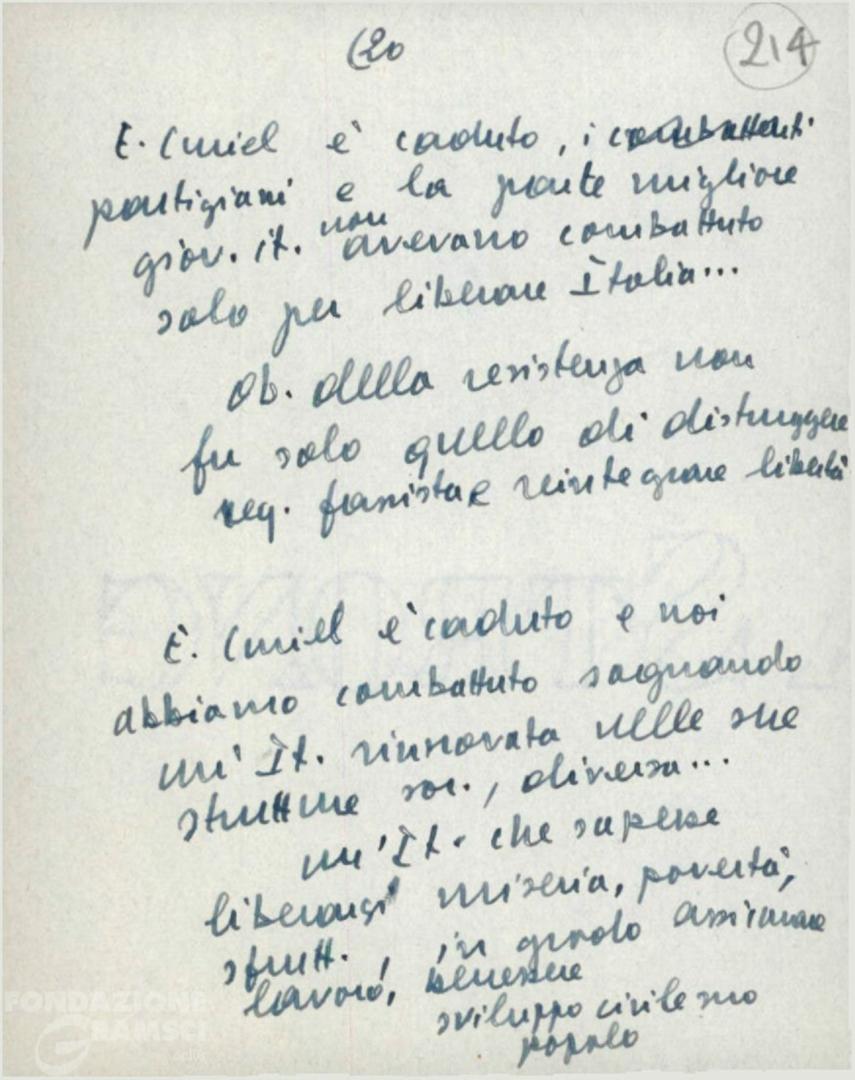 (20
214
E. Curiel è caduto, i combattenti
partigiani e la parte migliore
giov. it. non avevano combattuto
solo per liberare Italia...
Ob. della resistenza non
fu solo quello di distruggere
reg. fascista e reintegrare libertà
E. Curiel è caduto e noi
abbiamo combattuto sognando
un' It. rinnovata nelle sue
strutture soc., diversa...
un' It. che sapesse
liberarsi miseria, povertà,
sfrutt., in grado assicurare
lavoro, benessere
sviluppo civile suo
popolo
FONDAZIONE
GRAMSCI